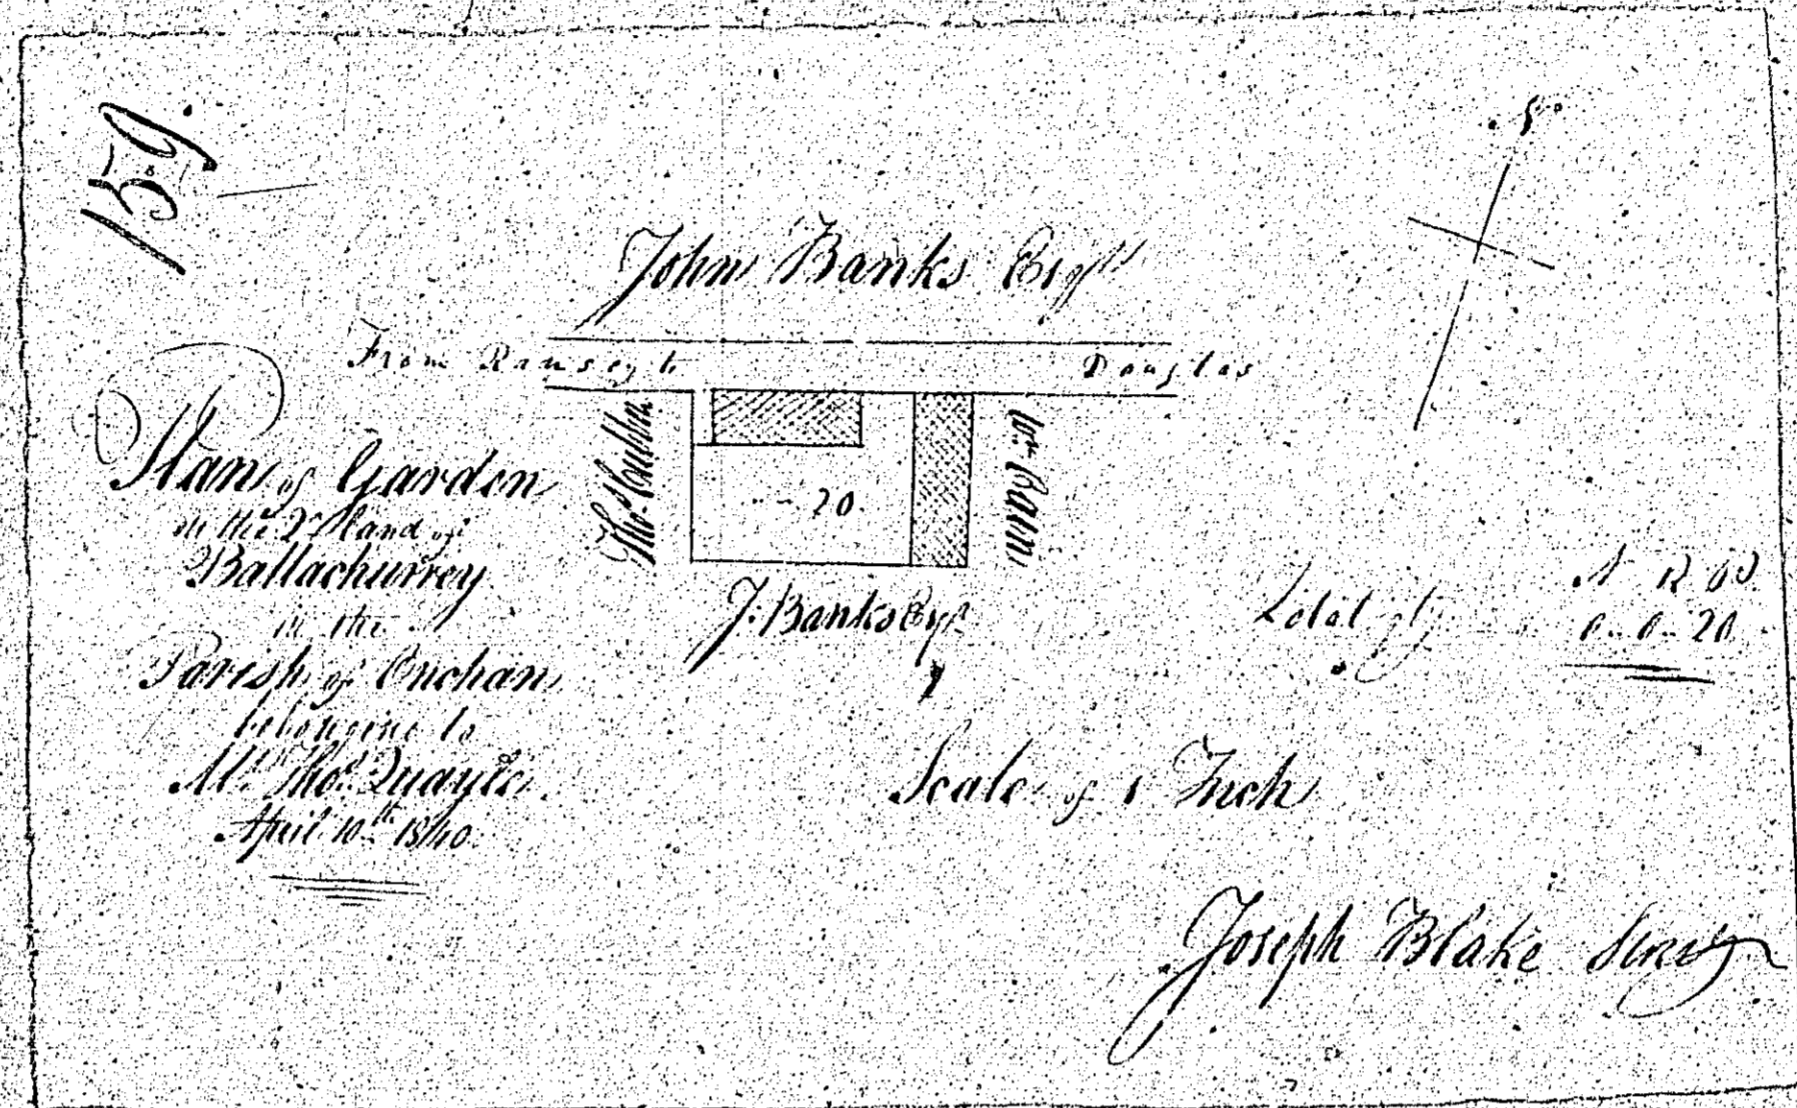 159.
John Banks Esqr
From Ramsey to Douglas
Thos
Wm Cain
20
J. Banks Esqr
Plan of Garden
in the Qrland of
Ballachurrey
in the
Parish of Onchan
belonging to
Mr. Thos. Quayle
April 10th 1840
A R P
0 .. 0 .. 20
Scale of 1 Inch
Joseph Blake Survyr